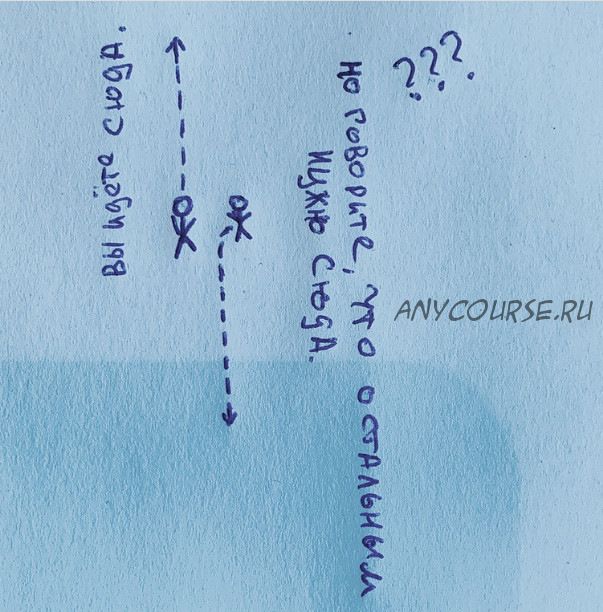 ВЫ ИДЁТЕ СЮДА.
НО ГОВОРИТЕ, ЧТО ОСТАЛЬНЫМ
НУЖНО СЮДА.
???
ANYCOURSE.RU